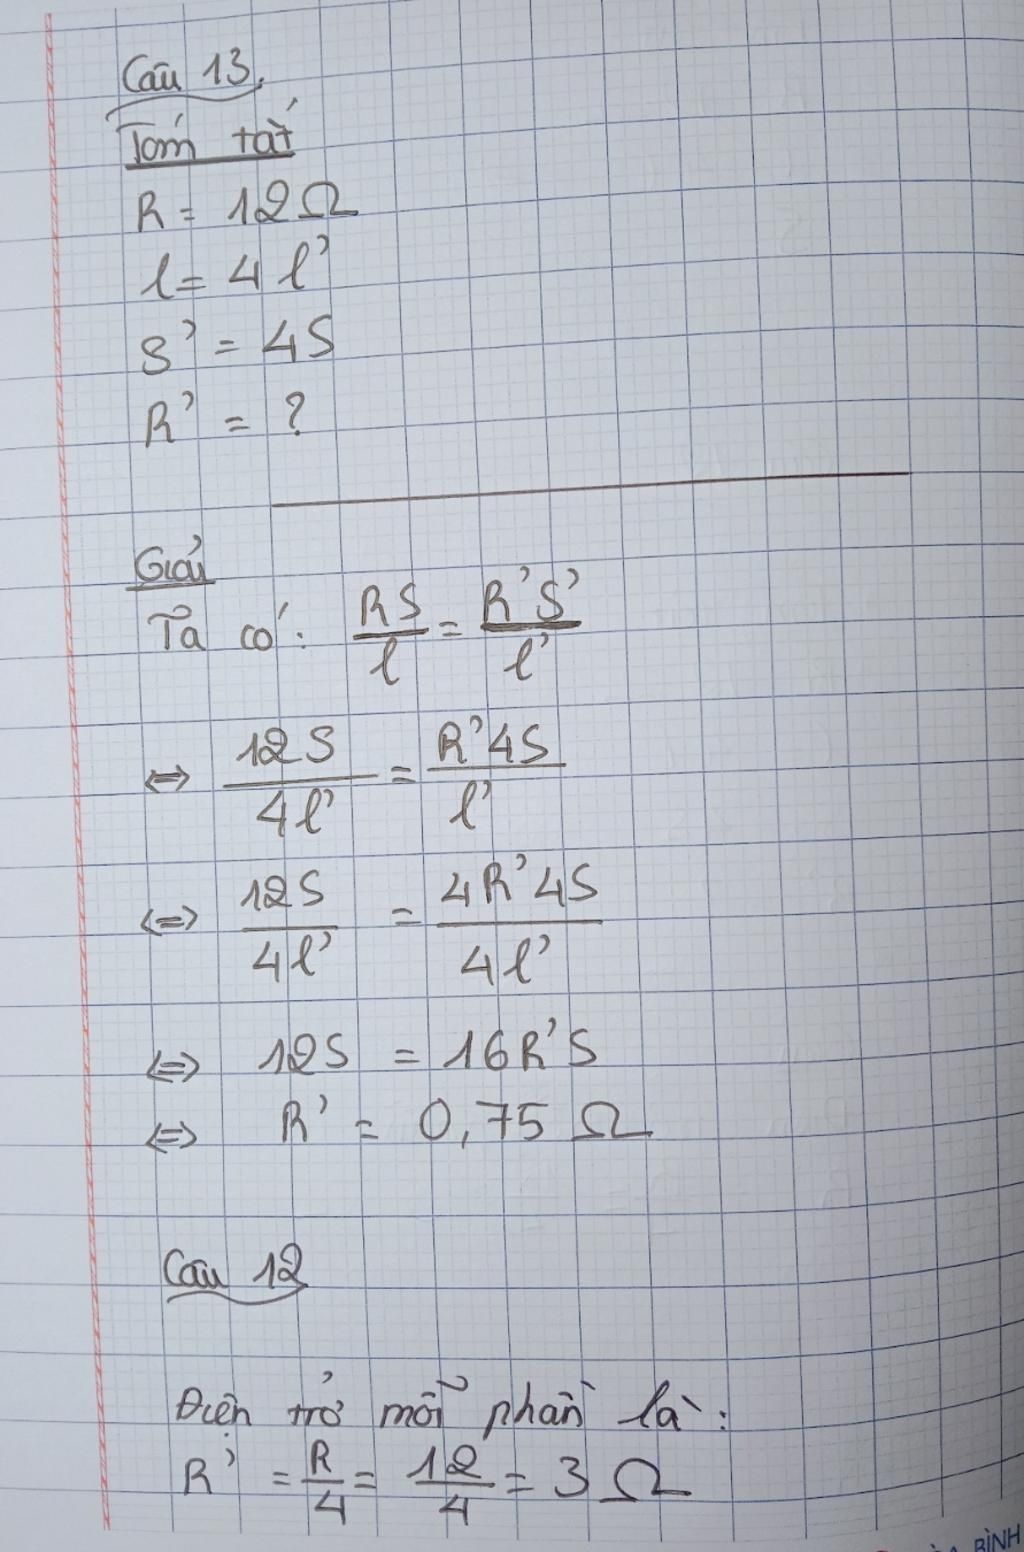 Câu 13.
Tóm tắt
R = 12Ω
l = 4 l'
S' = 4S
R' = ?
Giải
Ta có: RS/l = R'S'/l'
⇔ 12S/4l' = R'4S/l'
⇔ 12S/4l' = 4R'4S/4l'
⇔ 12S = 16R'S
⇔ R' = 0,75 Ω
Câu 12
Điện trở mỗi phần là:
R' = R/4 = 12/4 = 3 Ω
BÌNH